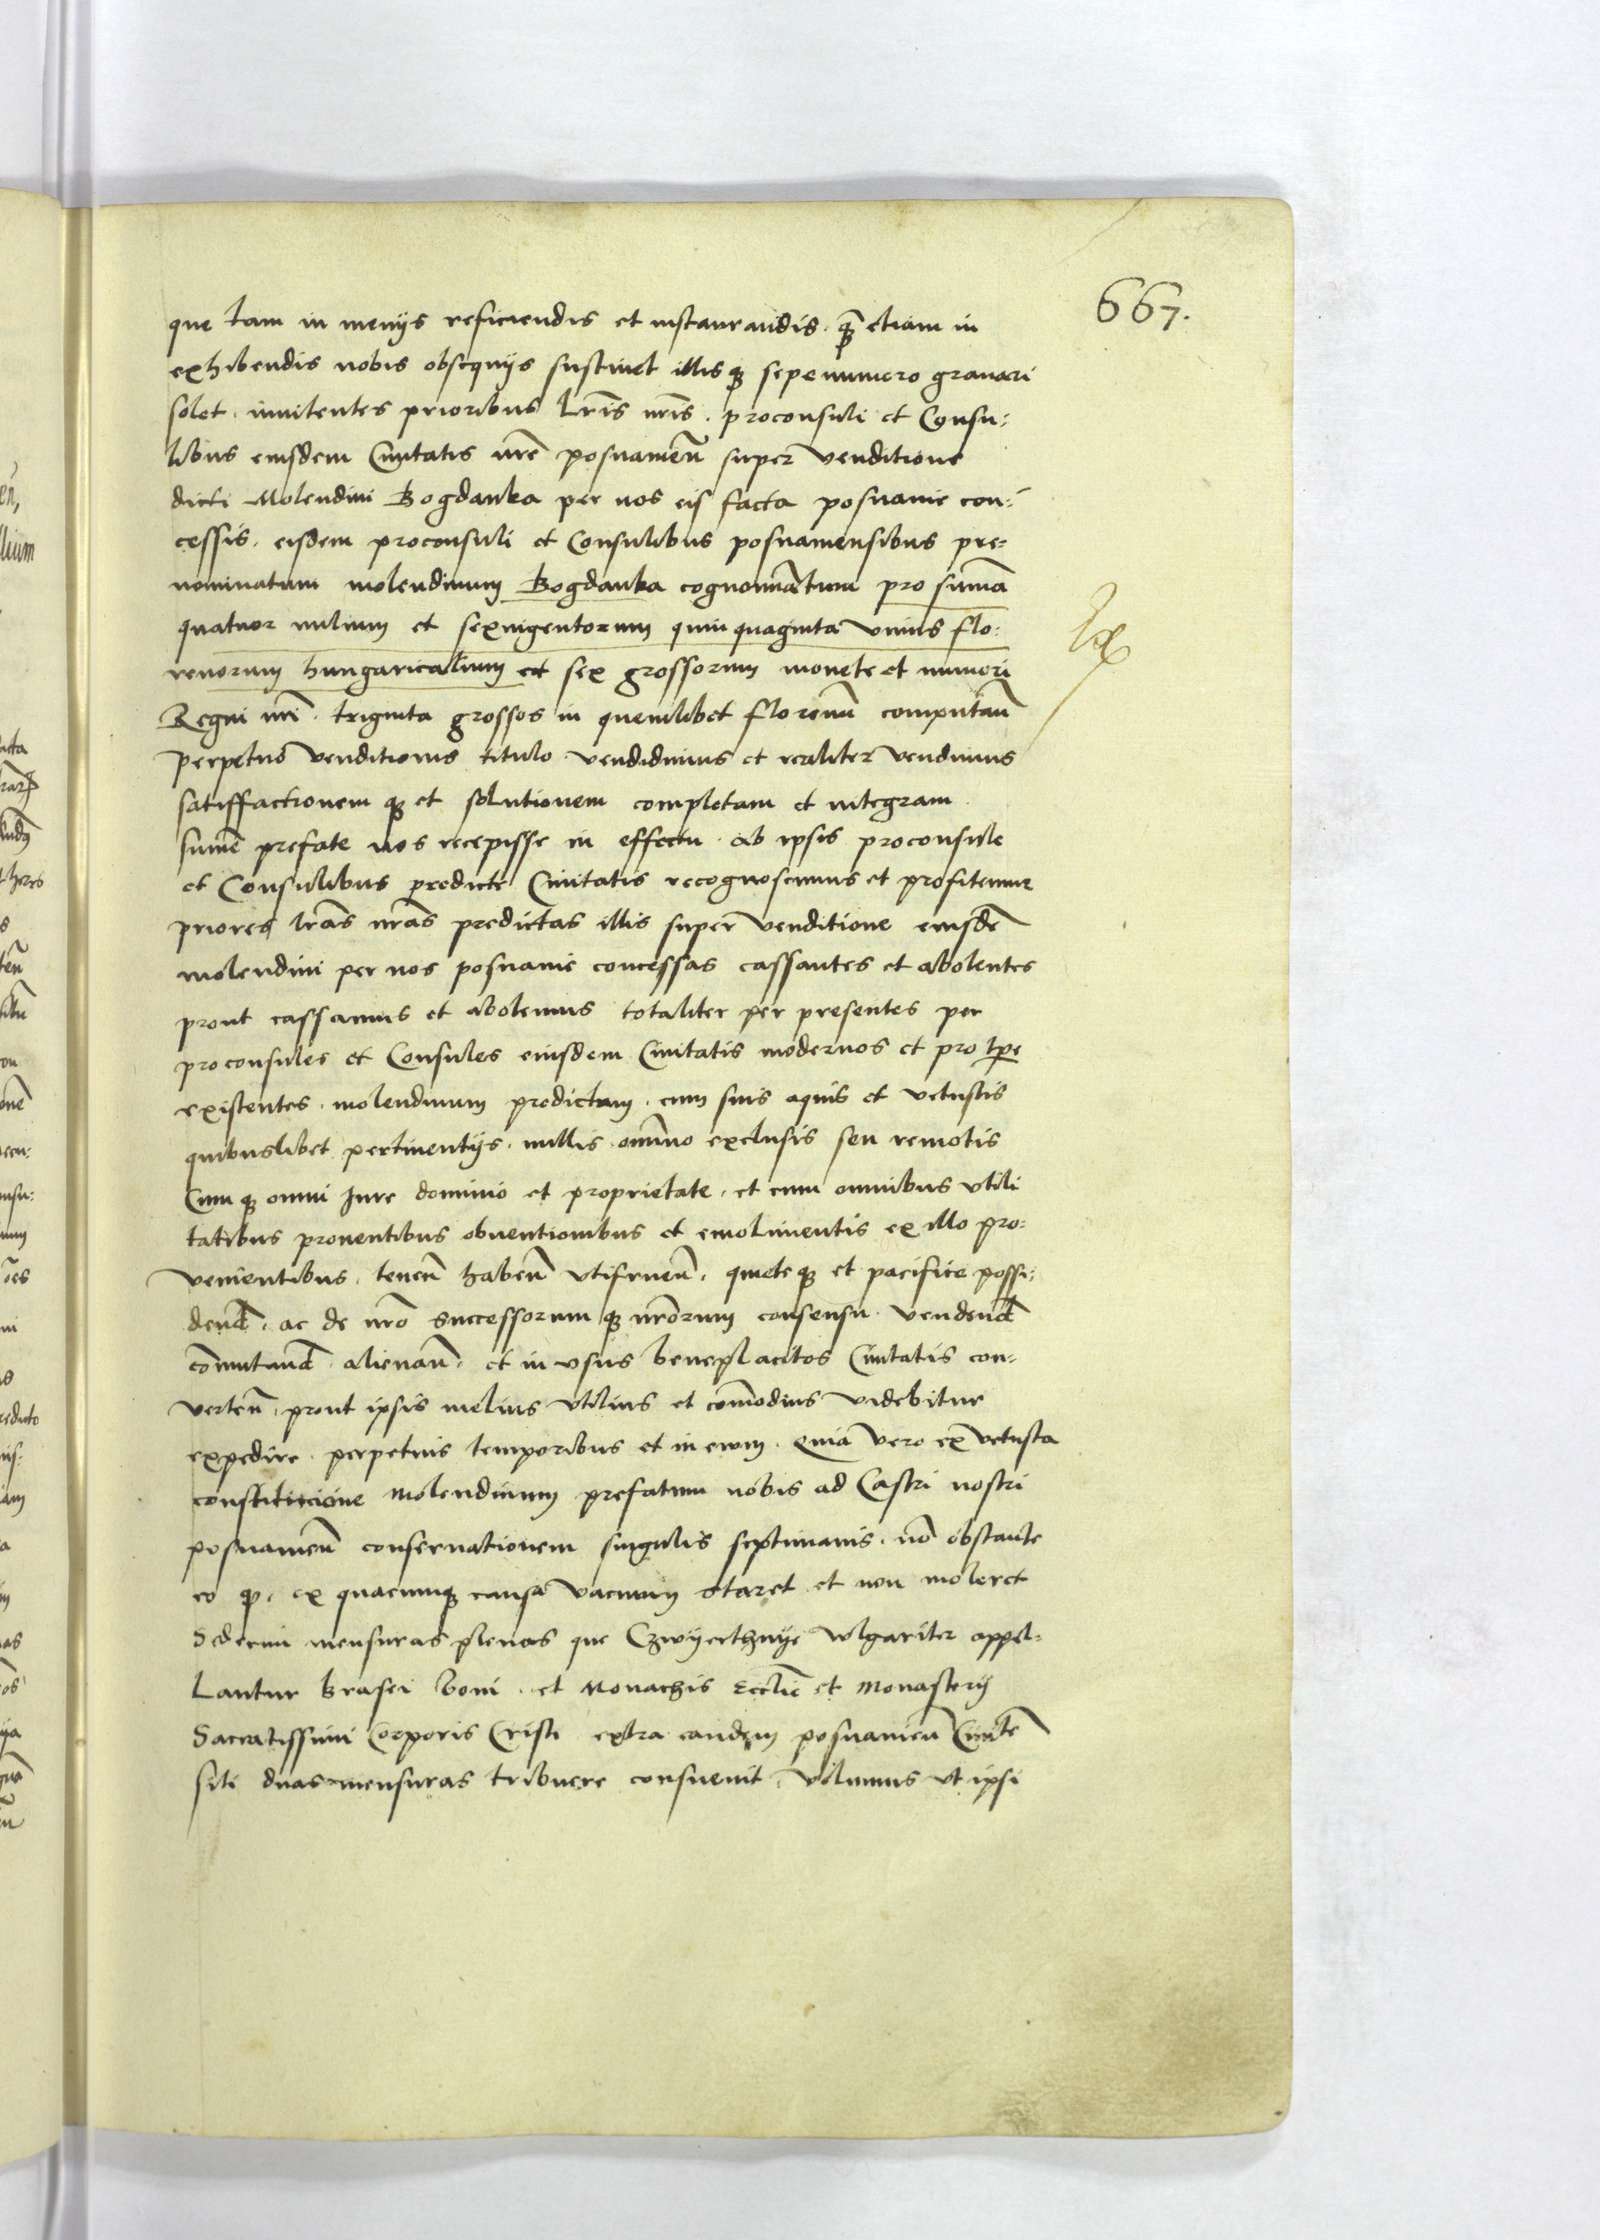 667.
que tam in menijs reficiendis et instaurandis. q̃ etiam in
exhibendis nobis obsequijs sustinet illisq; sepenumero grauari
solet. innitentes prioribus l̃ris nr̃is. proconsuli et Consu:
libus eiusdem Ciuitatis nr̃e posnamen̄ super venditione
dicti Molendini Bogdanka per nos eis facta posnanie con:
cessis. eisdem proconsuli et Consulibus posnamensibus pre:
nominatum molendinum Bogdanka cognominatum pro sum̄a
quatuor milium et sexingentorum quinquaginta vnius flo:
renorum hungaricalium et sex grossorum monete et numeri
Regni nr̃i. triginta grossos in quemlibet florenū computan̄
perpetuo venditionis titulo vendidimus et realiter vendimus
satisffactionem q; et solutionem completam et integram
sum̄e prefate nos recepisse in effectu. ab ipsis proconsule
et Consulibus predicte Ciuitatis recognoscimus et profitemur
priores l̃ras nr̃as predictas illis super venditione eiusdē
molendini per nos posnanie concessas cassantes et abolentes
prout cassamus et abolemus totaliter per presentes per
proconsules et Consules eiusdem Ciuitatis modernos et pro tp̄e
existentes. molendinum predictum. cum suis aquis et vetustis
quibuslibet pertinentijs. nullis omnino exclusis seu remotis
Cumq; omni Jure dominio et proprietate. et cum omnibus vtili
tatibus prouentibus obuentionibus et emolimentis ex illo pro:
uenientibus. tenen̄ haben̄ vtifruen̄. quieteq; et pacifice possi:
dend̄. ac de nr̃o successorumq; nr̃orum consensu. vendend̄
com̄utand̄. alienan̄. et in vsus beneplacitos Ciuitatis con:
uerten̄. prout ipsis melius vtilius et com̄odius videbitur
expedire. perpetuis temporibus et in ewm. Quia vero ex vetusta
constitucione Molendinum prefatum nobis ad Castri nostri
posnamen̄ conseruationem singulis septimanis. nō obstante
eo q. ex quacunq; causa vacuum staret et non moleret
Sedecim mensuras plenas que Czwyerthnye wlgariter appel:
lantur brasei boni. et Monachis Ecclīe et Monasterij
Sacratissimi Corporis Cristi extra eandem posnamien̄ Ciuitē
siti duas mensuras tribuere consueuit. volumus vt ipsi